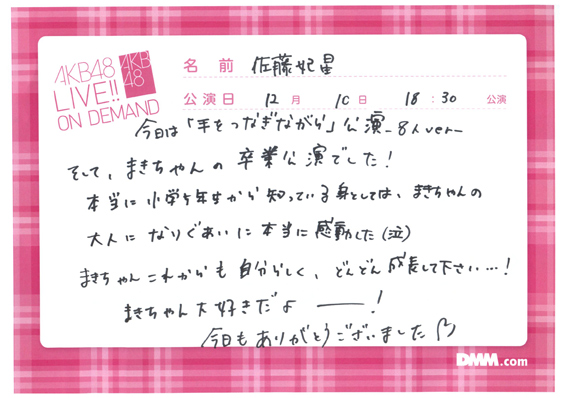 AKB48
LIVE!!
ON DEMAND
AKB
48
名前 佐藤妃星
公演日 12月 10日 18:30 公演
今日は「手をつなぎながら」公演 -8人ver-
そして、まきちゃんの卒業公演でした!
本当に小学5年生から知っている身としては、まきちゃんの
大人になりぐあいに本当に感動した(泣)
まきちゃんこれからも自分らしく、どんどん成長して下さい…!
まきちゃん大好きだよ――!
今日もありがとうございました
DMM.com